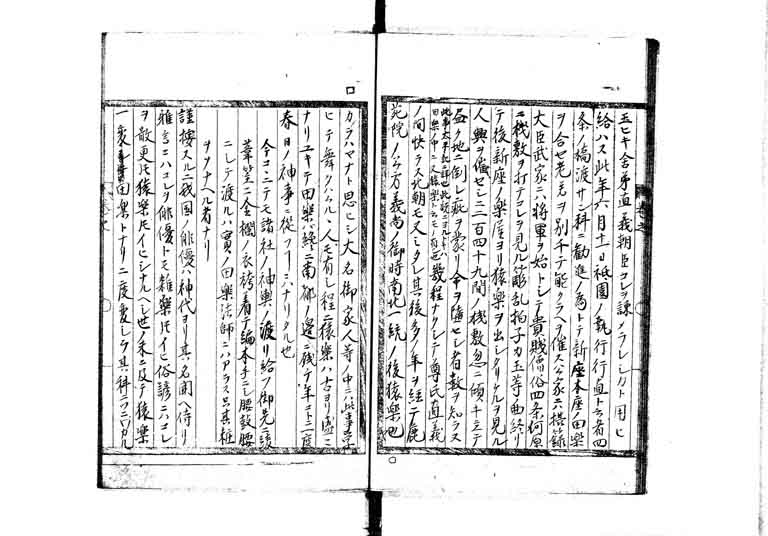 玉ヒキ舎弟直義朝臣コレヲ諫メラレシカト用ヒ
給ハス此年六月十一日祇園ノ執行行直ト云者四
条ノ橋渡サン料ニ勧進ノ為トテ新座本座ノ田楽
ヲ合セ老若ヲ別チテ能クラヘヲ催ス公家ニハ摂籙
大臣武家ニハ将軍ヲ始トシテ貴賤僧俗四条河原
ニ機敷ヲ打テコレヲ見ル乱拍子刀玉等曲終リ
テ後新座ノ楽屋ヨリ猿楽ヲ出シケルヲ見ル
人興ヲ催セシニ二百四十九間ノ機敷忽ニ傾キ立テ
地ニ倒レ疵ヲ蒙リ命ヲ損セシ者数ヲ知ラス
此事太平記ニ詳也
幾程ナクシテ尊氏直義
ノ間快ラス北朝モ又ミタレ其後多クノ年ヲ経テ鹿
苑院ノ公方義満ノ御時南北一統ノ後猿楽
カラハマナト思ヒシ大名御家人等ノ中ニ此事学
ヒテ舞カナツル人モ有シ程ニ猿楽ハ古ヨリ盛ニ
ナリユキテ田楽ハ終ニ南都ノ辺ニ残テ年コトニ二度
春日ノ神事ニ従フノミニナリタル也
今コヽニテモ諸社ノ神輿ノ渡リ給フ御先ニ
華笠ニ金襴ノ衣袴着テ編木手ニシ腰鼓腰
ニシテ渡ルハ実ノ田楽法師ニハアラス只其
ヲヲナヘル者ナリ
謹按スルニ我国ノ俳優ハ神代ヨリ其名聞ヘ侍リ
雅言ニハコレヲ俳優トモ雑楽トモイヒ俗諺ニハコレ
ヲ散更トモ猿楽トモイヒシナルヘシ世ノ末ニ及テ猿楽
一変田楽トナリ二度変シテ其科ニ